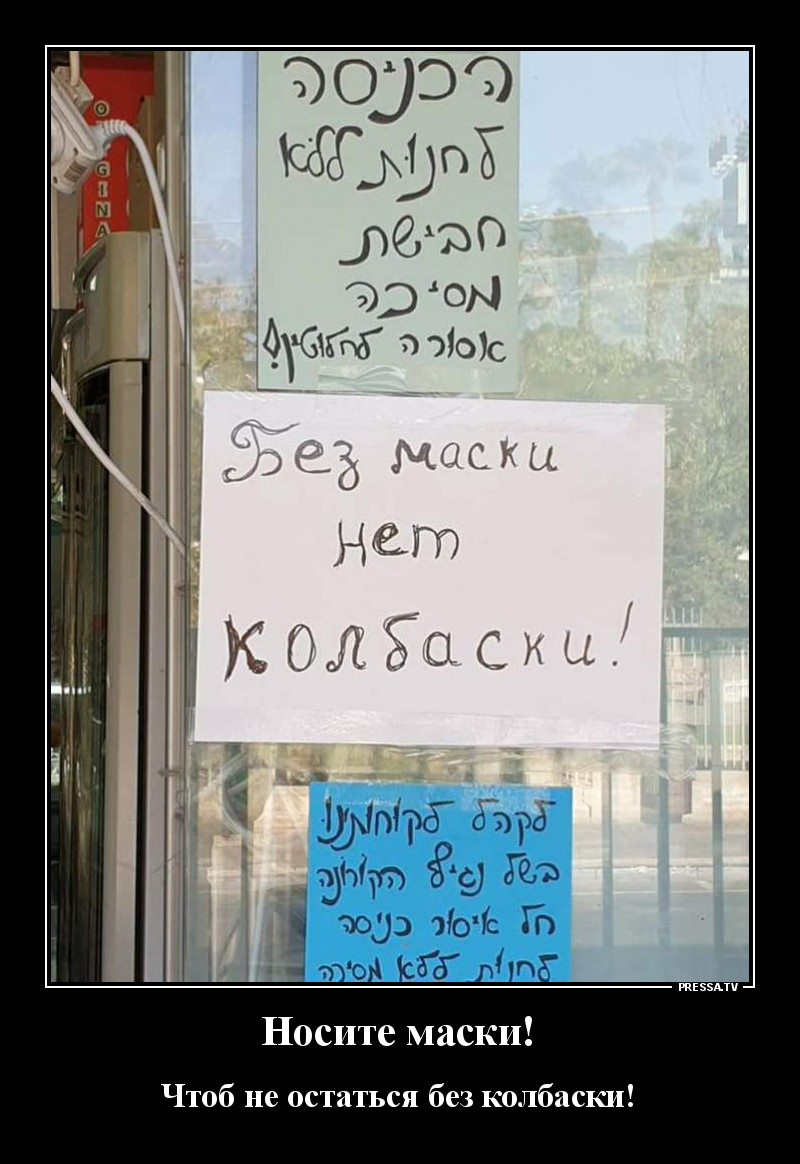 ORIGINA
הכניסה
לחנות ללא
חבישת
מסיכה
אסורה לחלוטין!
Без маски
нет
колбаски!
לקהל לקוחותינו
בשל נגיף הקורונה
חל איסור כניסה
לחנות ללא מסיכה
PRESSA.TV
Носите маски!
Чтоб не остаться без колбаски!